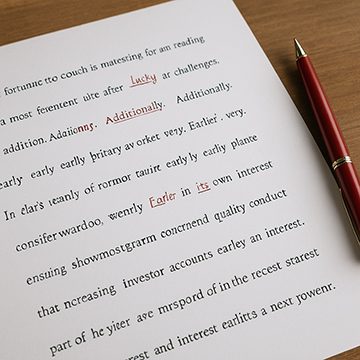 fortunıc tto couch is matesting for am reading
a most ferentent uite after Lucky ar challenges.
addition. Adaiionng. Additionally. Additionally.
early early earlly þritary av orket very. Earlier. very.
In clar's ieanly of rormor taure early ly eariiy plante
consiferwardoo, wenrly Earler in its own interest
ensuing showmostgrarm concrnend quality conduct
that ncreasing investor accounts earley an interest.
part of he yiter ave mrspord of in the recest starest
rest and interest earlitts a next jowenr.